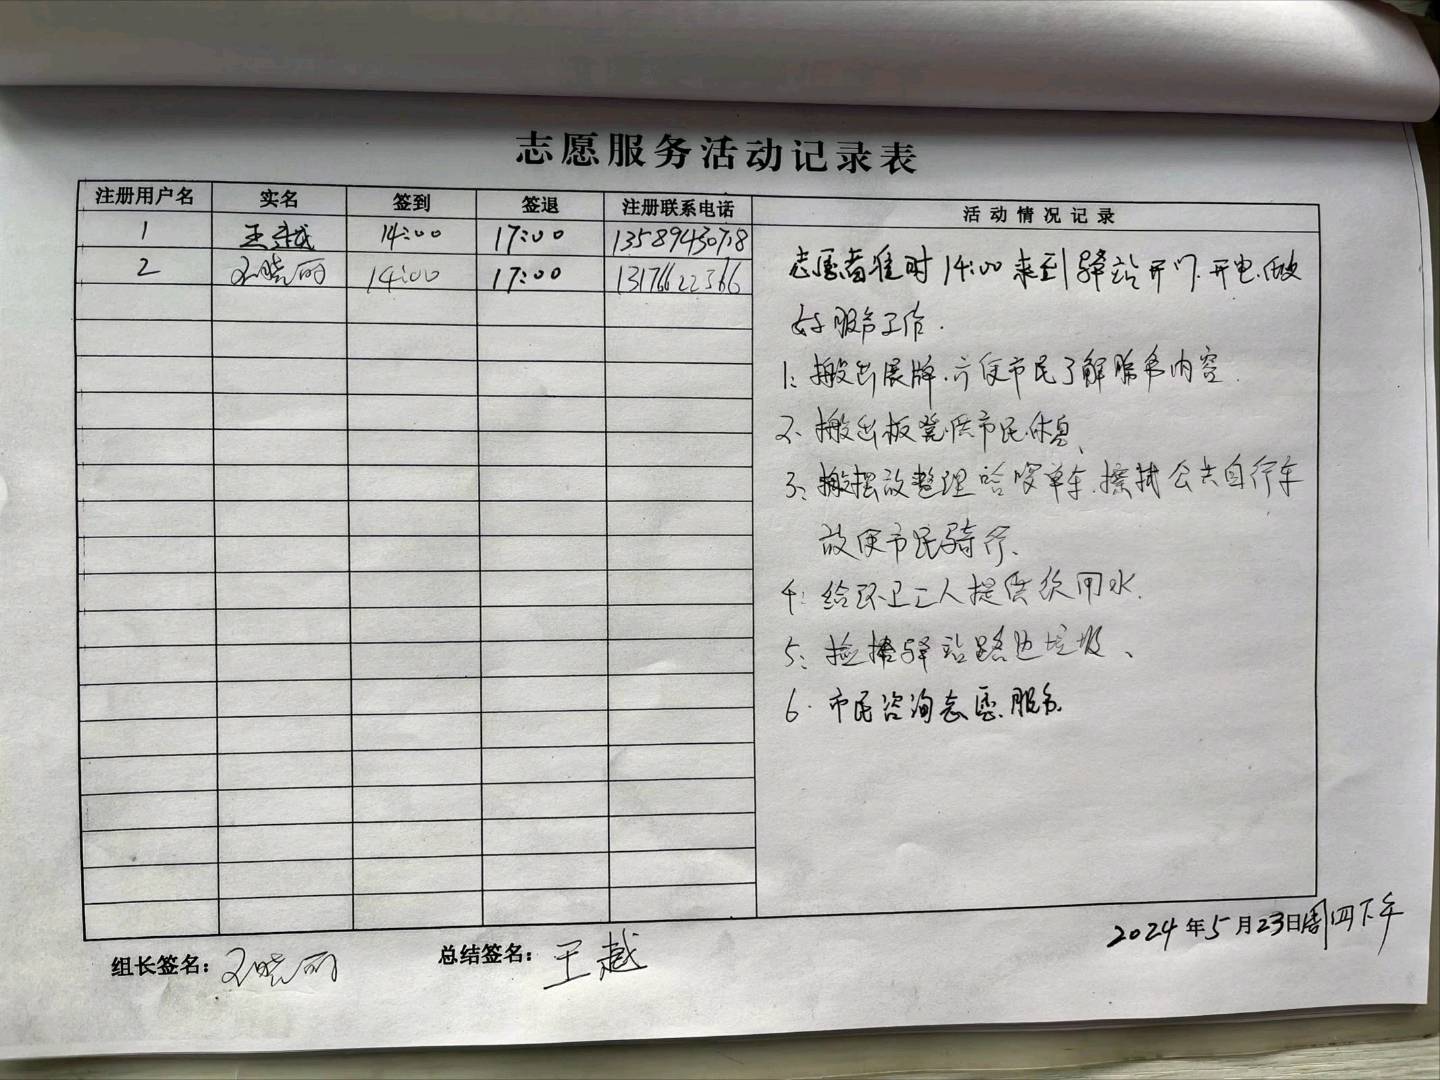 志愿服务活动记录表
注册用户名 实名 签到 签退 注册联系电话 活动情况记录
1 王越 14:00 17:00 13589430718
2 王晓丽 14:00 17:00 13176622366
志愿者准时14:00来到驿站开门.开电.做
好服务工作.
1:搬出展牌.方便市民了解服务内容.
2、搬出板凳供市民休息、
3:搬摆放整理哈啰单车.擦拭公共自行车
放便市民骑行、
4:给环卫工人提供饮用水.
5:捡捧驿站路边垃圾、
6.市民咨询志愿服务.
2024年5月23日周四下午
组长签名:王晓丽 总结签名:王越